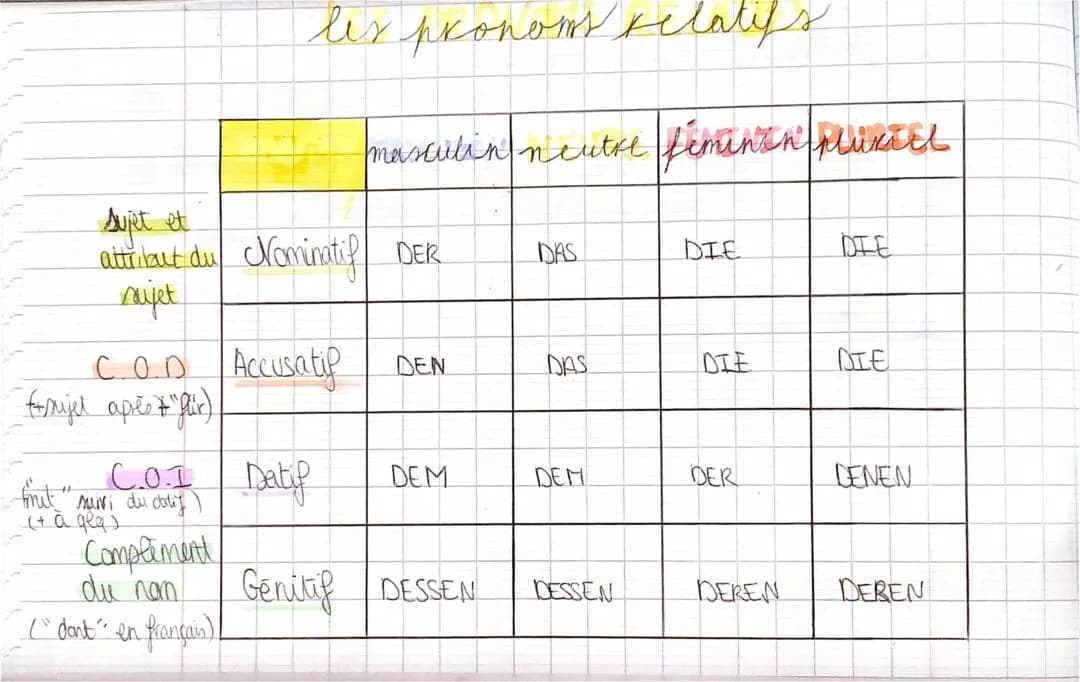 les pronoms relatifs
masculin neutre féminin pluriel
Sujet et
attribut du
sujet
Nominatif DER DAS DIE DIE
C.O.D
Accusatif DEN DAS DIE DIE
(+sujet après "für)
C.O.I
Datif DEM DEM DER DENEN
"mit" suivi du datif)
(+ à qlq)
Complément
du nom
Génitif DESSEN DESSEN DEREN DEREN
("dont" en français)